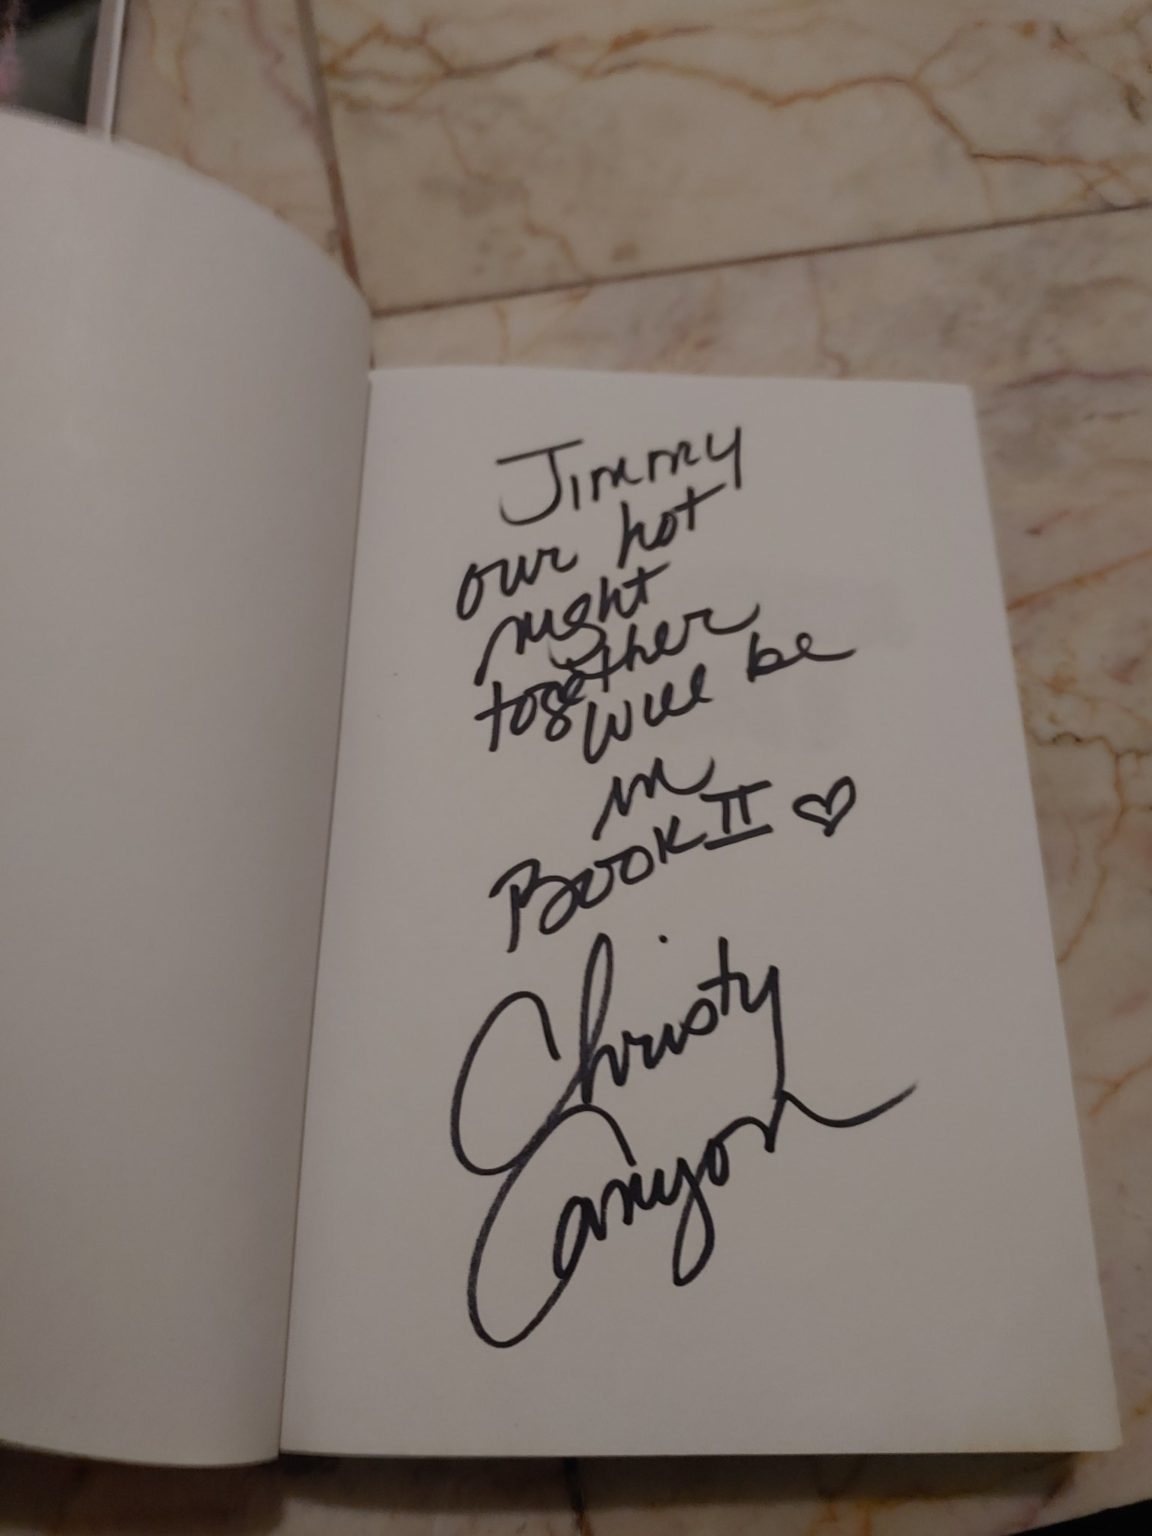 Jimmy
our hot
night
together
will be
in
Book II ♡
Christy
Canyon